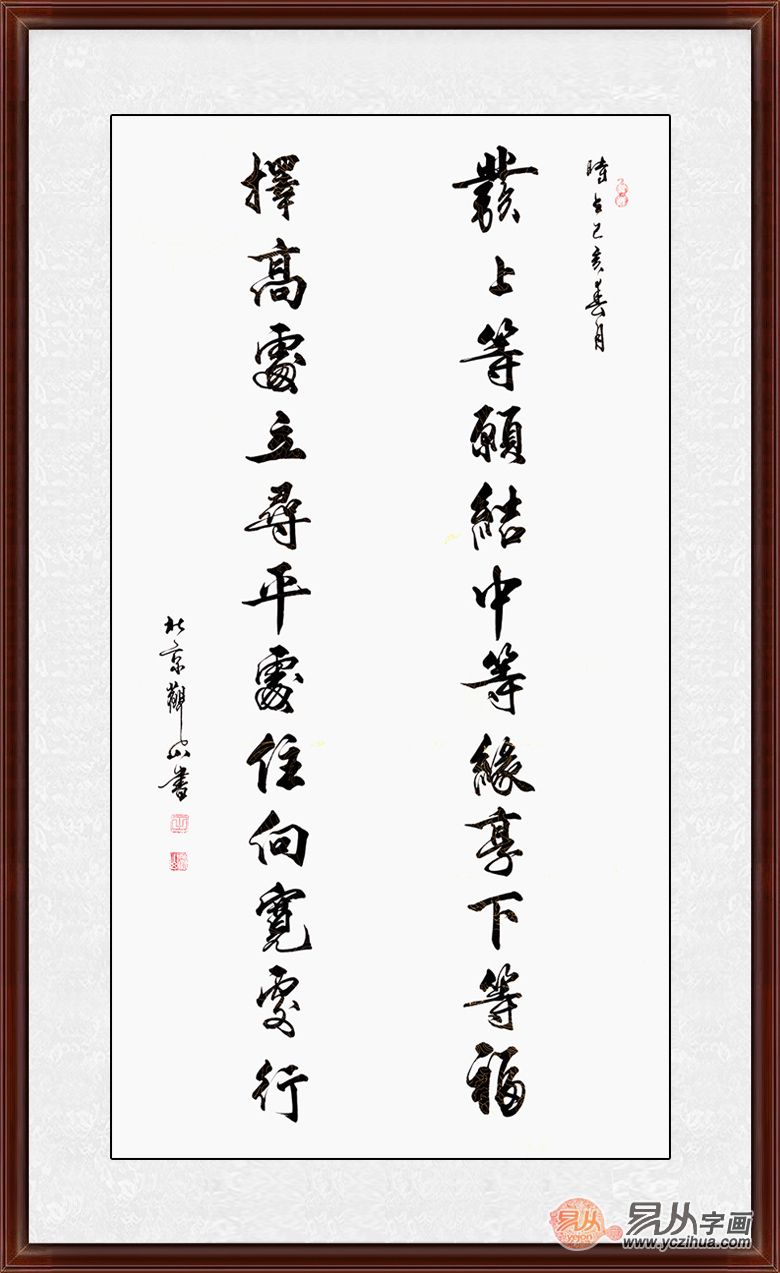 時在己亥春月
發上等願結中等緣享下等福
擇高處立尋平處住向寬處行
北京觀山書
易从
yqjon
易从字画
www.yczihua.com